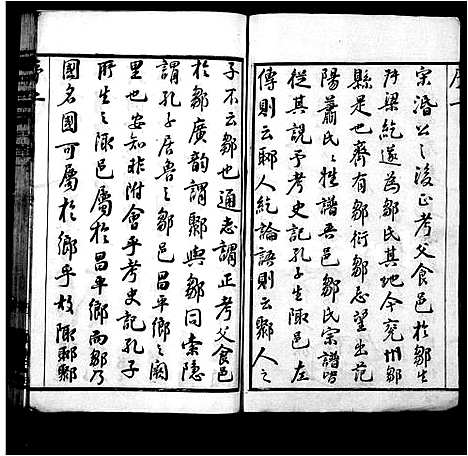 序一
宋湣公之後正考父食邑於鄒生
叔梁紇遂為鄒氏其地今兗州鄒
縣是也齊有鄒衍鄒忌望出范
陽蕭氏之姓譜吾邑鄒氏宗譜皆
從其說予考史記孔子生陬邑左
傳則云郰人紇論語則云鄹人之
子不云鄒也通志謂正考父食邑
於鄒廣韵謂鄹與鄒同索隱
謂孔子居魯之鄒邑昌平鄉之闕
里也安知非附會乎考史記孔子
所生之陬邑屬於昌平鄉而鄒乃
國名國可屬於鄉乎故陬郰鄹